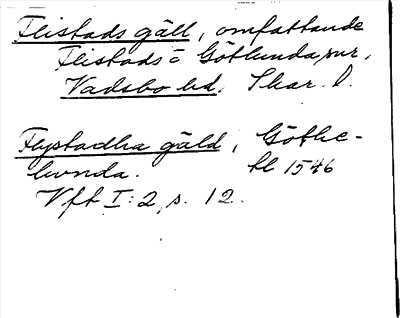 Flistads gäll, omfattande
Flistads o Götlunda snr,
Vadsbo hd, Skar. l.
Flystadha gäld, Göthe-
lwnda. hl 1546
Vft I:2, s. 12.